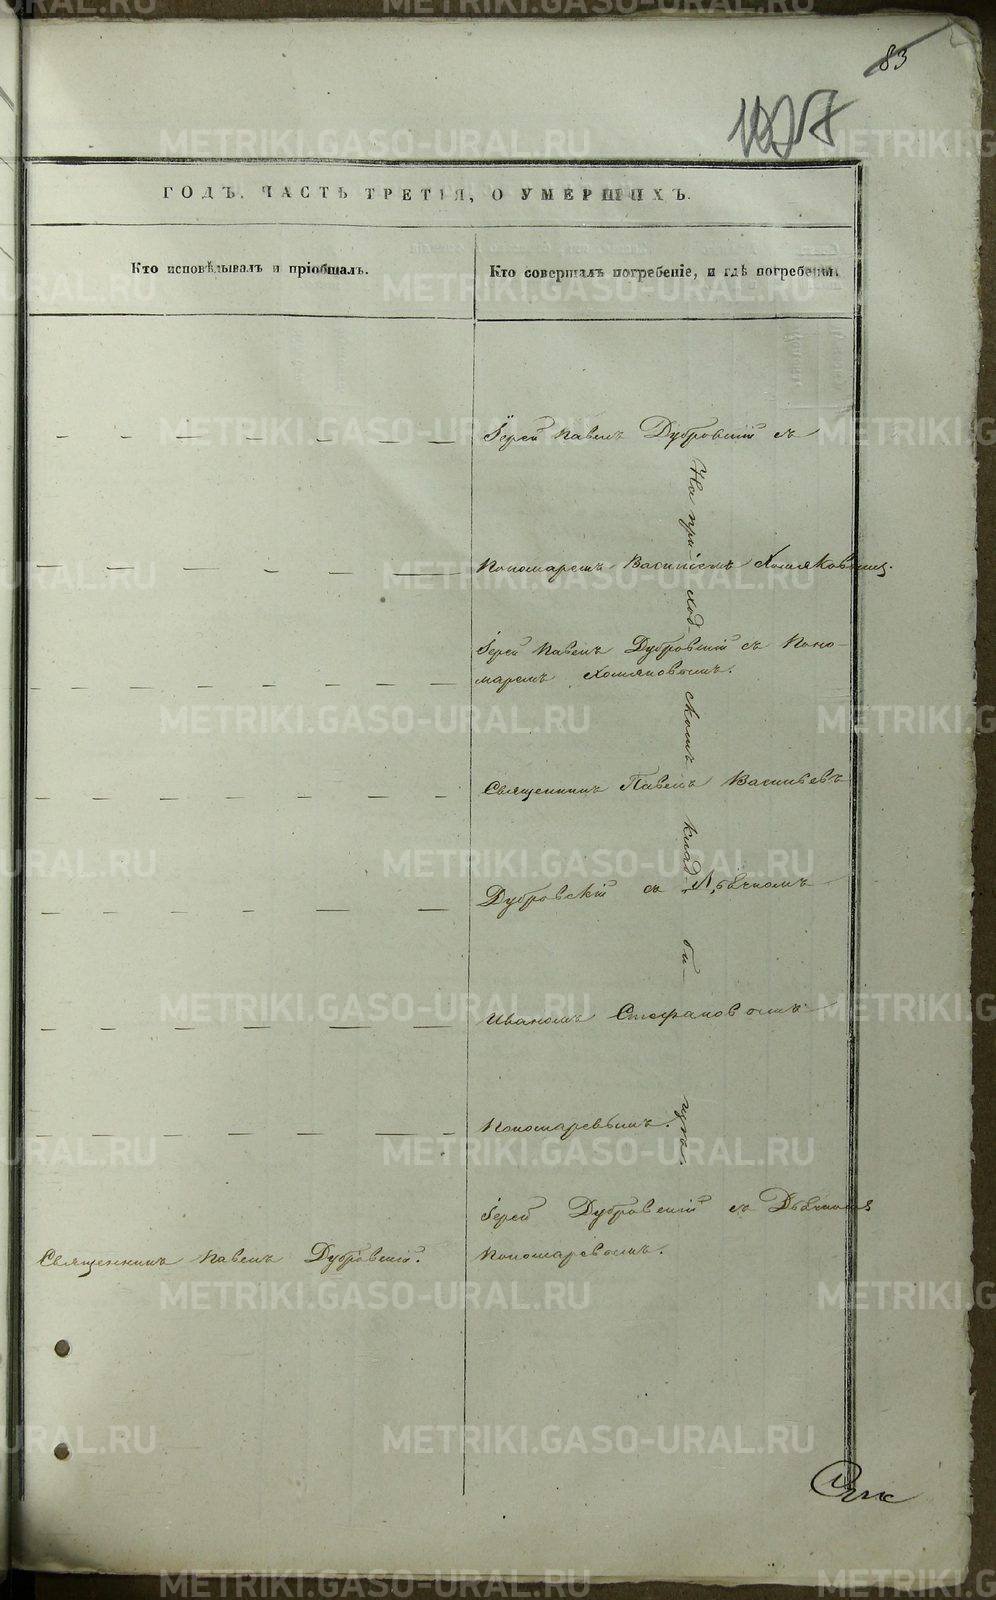 83
ГОДЪ, ЧАСТЬ ТРЕТІЯ, О УМЕРШИХЪ.
Кто исповѣдывалъ и пріобщалъ.
Кто совершалъ погребеніе, и гдѣ погребены.
Іерей Павелъ Дубровскій съ
Пономаремъ Василіемъ Хомяковымъ.
Іерей Павелъ Дубровскій съ Поно-
маремъ Хомяковымъ.
Священникъ Павелъ Васильевъ
Дубровскій съ Дьячкомъ
Иваномъ Стефановымъ
Пономаревымъ.
На при-
ход-
скомъ
клад-
би-
щѣ.
Священникъ Павелъ Дубровскій.
Іерей Дубровскій съ Дьячкомъ
Пономаревымъ.
METRIKI.GASO-URAL.RU